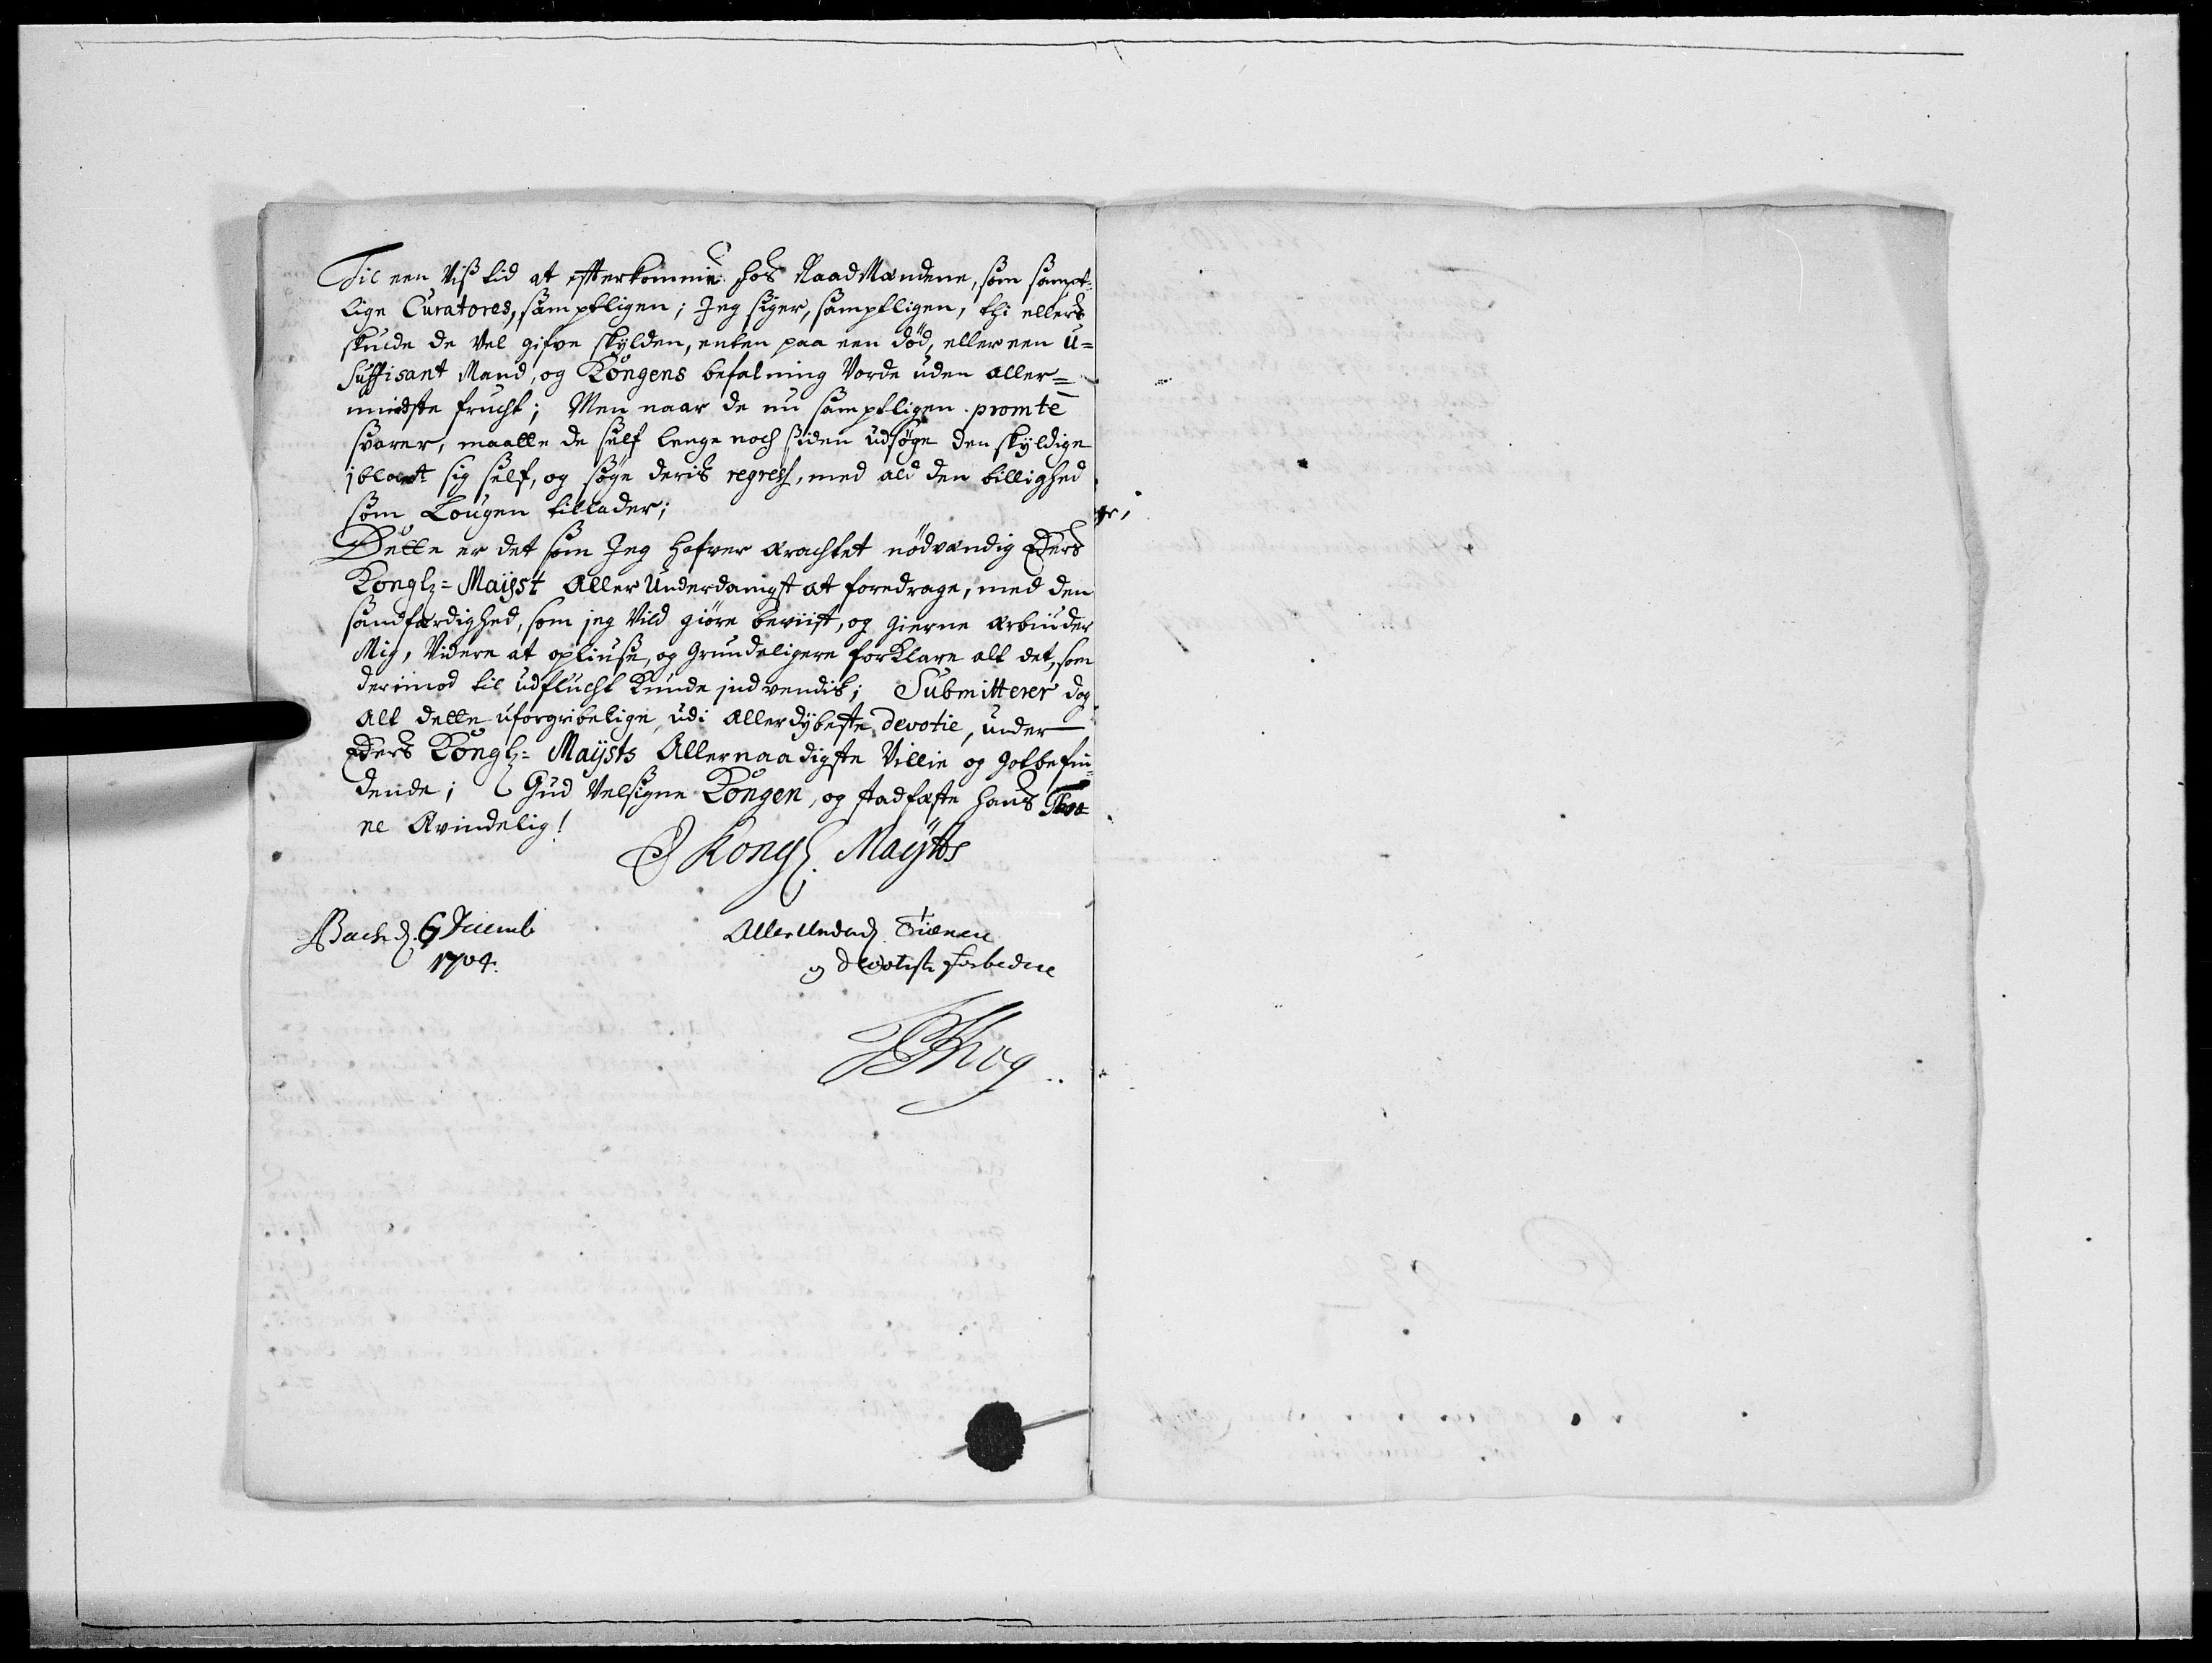 Til een Viss tid at efterkomme hos Raad Mændene, som sampt-
lige Curatores, samptligen; Jeg siger, samptligen, thi ellers
skulde de vel gifve skylden, enten paa een död, eller een u=
suffisant Mand, og Kongens befalning Vorde uden aller=
mindste frucht; Men naar de nu samptligen promte
svarer, maatte de self lenge noch siden udsöge den skyldige
iblant sig self, og söge deris regress, med ald den billighed
som Lougen tillader;
Dette er det som Jeg hafver erachtet nödvendig Eders
Kongl= Mayst Aller Underdanigst at foredrage, med den
sandferdighed, som jeg Vild giöre beviist, og gierne erbiuder
Mig, Videre at opliuse, og Grundeligere forklare alt det, som
derimod til udflucht kunde indvendis; Submitterer dog
alt dette uforgribelige, udi allerdybeste devotie, under
Eders Kongl= Maysts Allernaadigste Villie og Gotbefin=
dende; Gud Velsigne Kongen, og stadfæste hans Thro=
ne Evindelig!
E Kongl. Maytts
Bach d. 6 Decemb
1704.
AllerUnderd Tienere
og devoteste forbedere